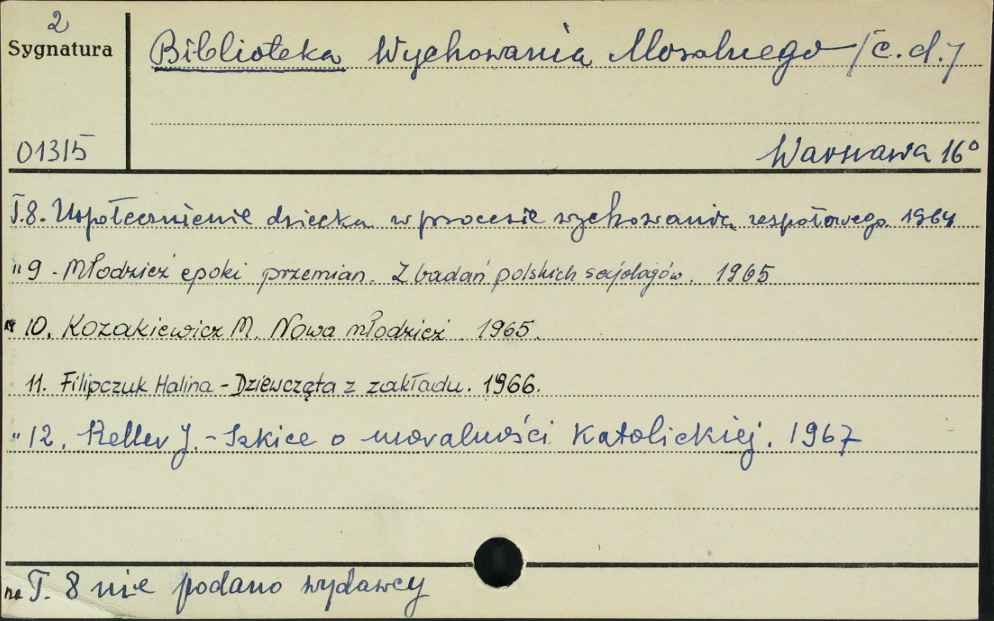 2
Sygnatura
Biblioteka Wychowania Moralnego /c.d./
01315
Warszawa 16°
T.8. Uspołecznienie dziecka w procesie wychowania zespołowego. 1964
" 9 - Młodzież epoki przemian. Z badań polskich socjologów. 1965
" 10. Kozakiewicz M. Nowa młodzież. 1965.
11. Filipczuk Halina - Dziewczęta z zakładu. 1966.
" 12. Keller J. - Szkice o moralności katolickiej. 1967
na T. 8 nie podano wydawcy